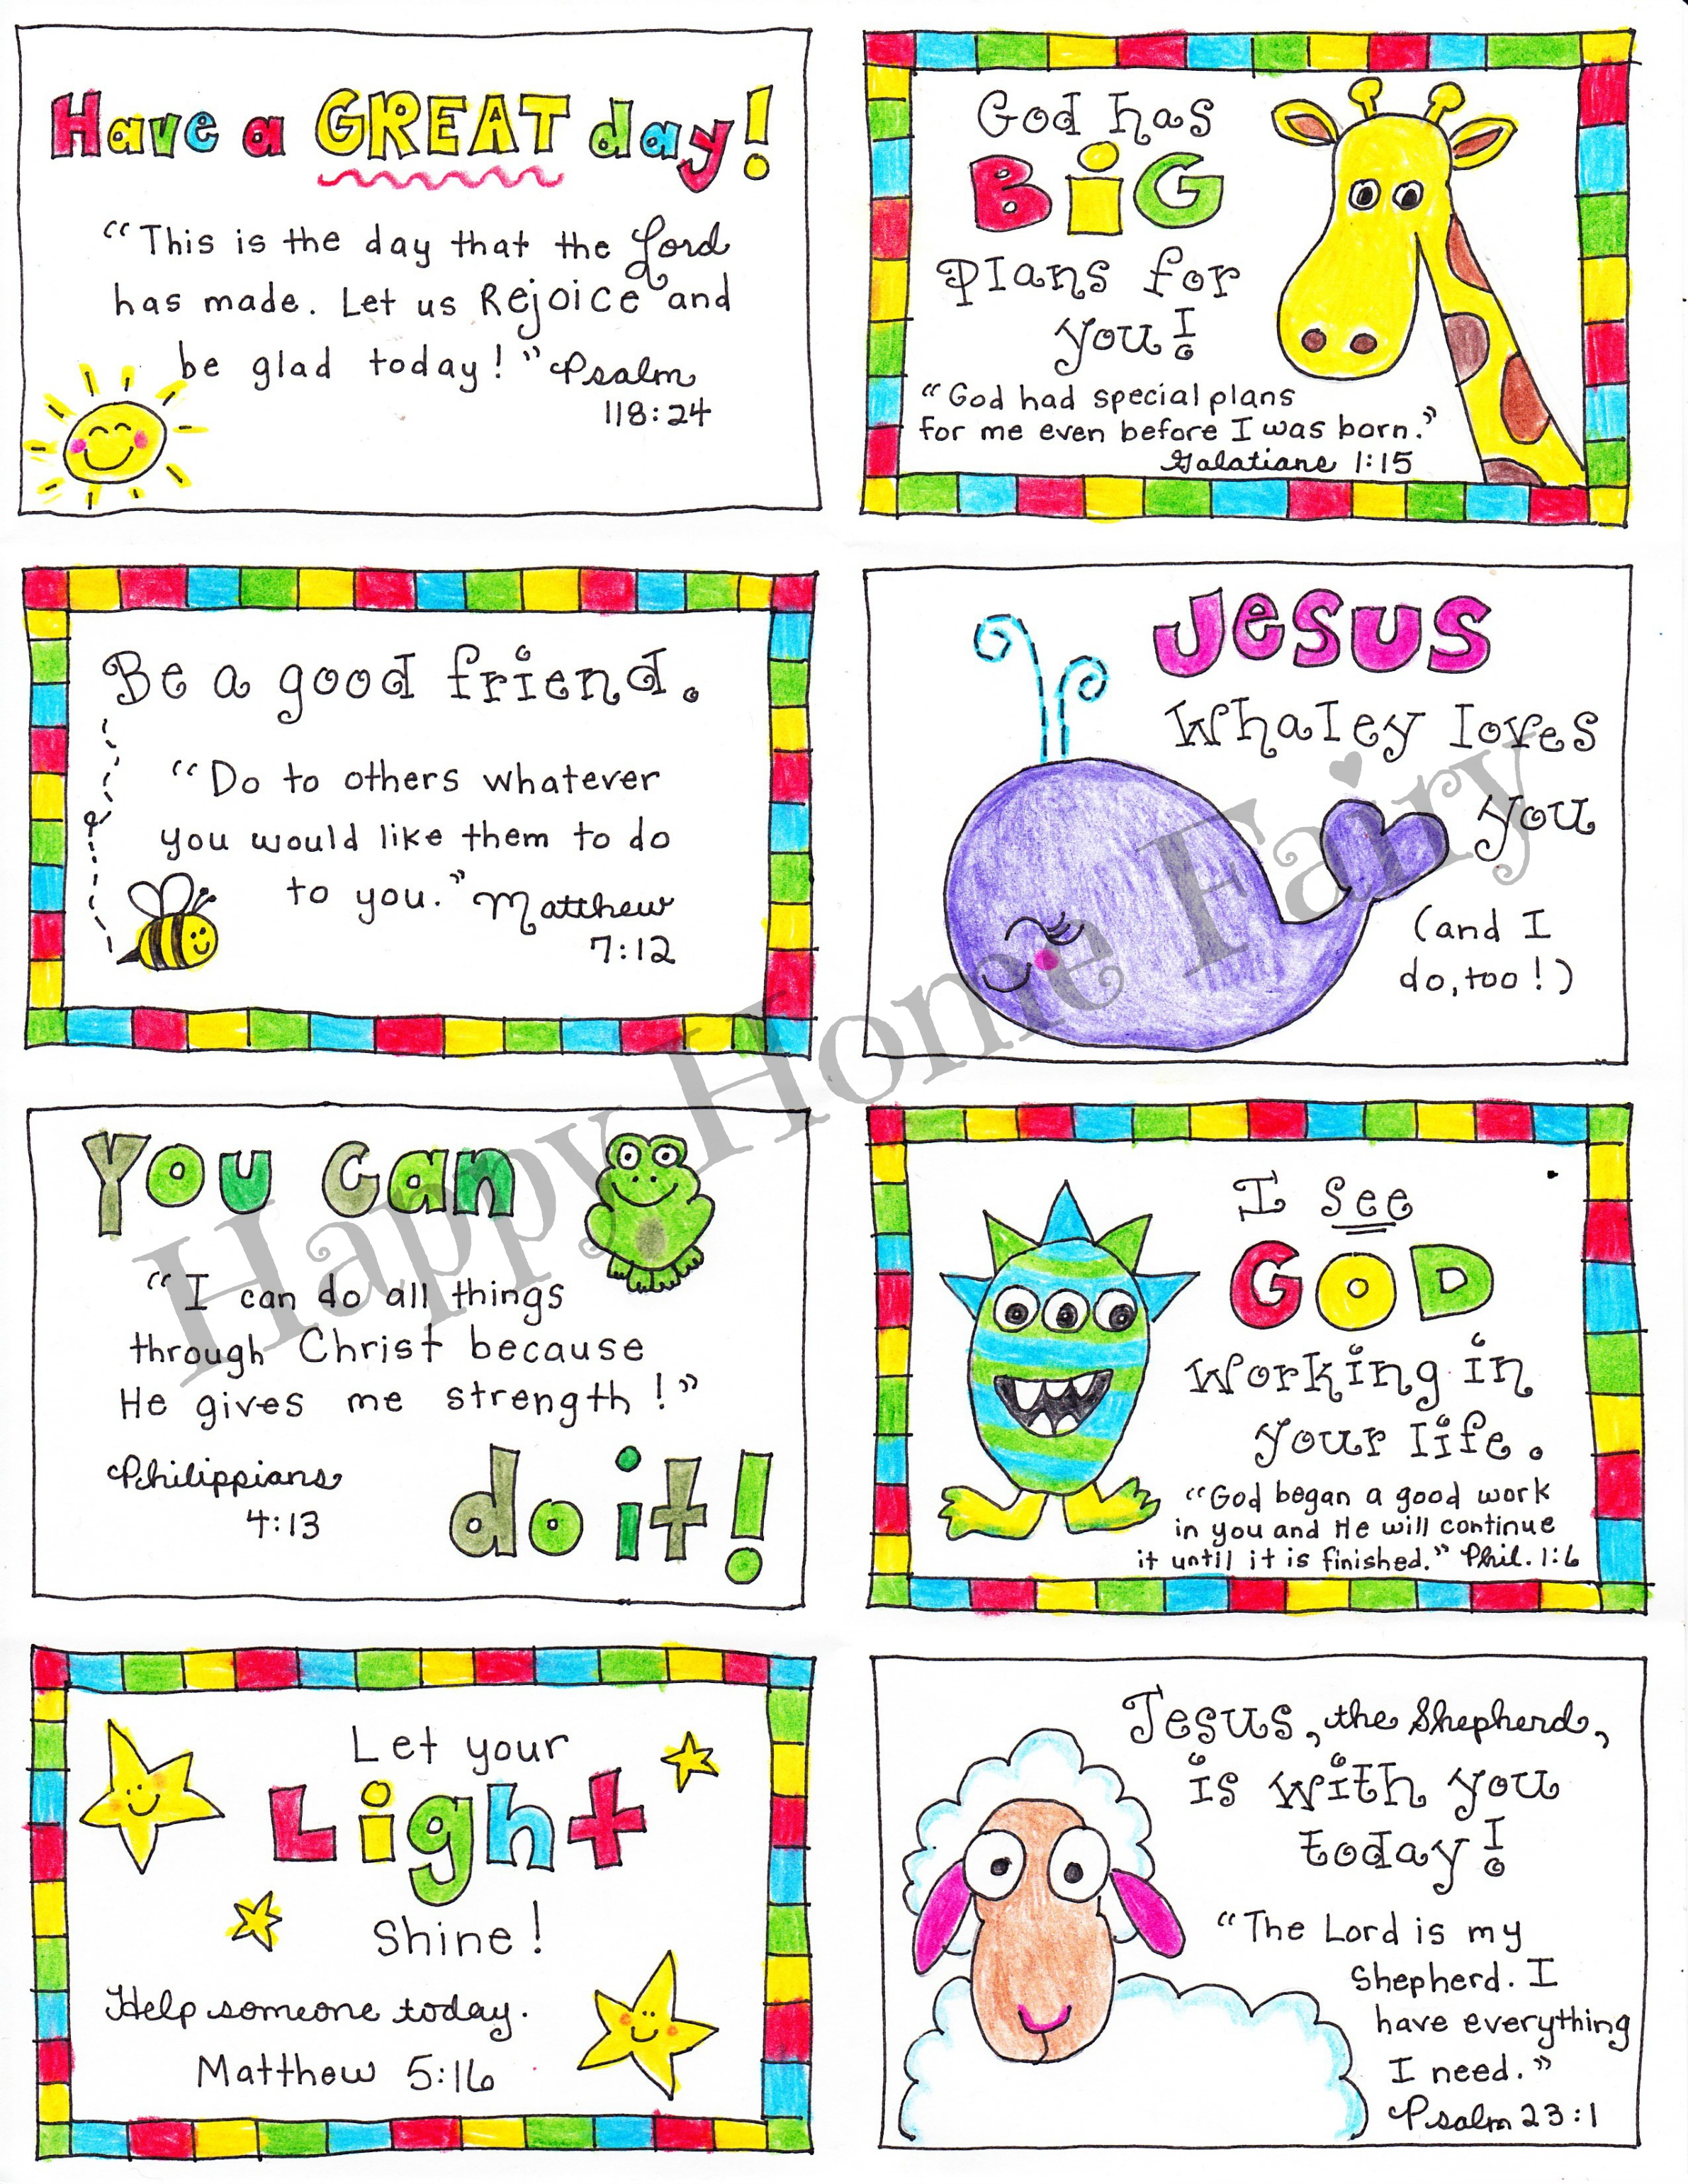 Have a GREAT day!
“This is the day that the Lord
has made. Let us Rejoice and
be glad today!” Psalm
118:24
God has
BiG
Plans for
you!
“God had special plans
for me even before I was born.”
Galatians 1:15
Be a good friend.
“Do to others whatever
you would like them to do
to you.” Matthew
7:12
Jesus
Whaley loves
you
(and I
do, too!)
You Can
“I can do all things
through Christ because
He gives me strength!”
Philippians
4:13
do it!
I see
GOD
working in
your life.
“God began a good work
in you and He will continue
it until it is finished.” Phil. 1:6
Let your
Light
shine!
Help someone today.
Matthew 5:16
Jesus, the Shepherd,
is with you
today!
“The Lord is my
Shepherd. I
have everything
I need.”
Psalm 23:1
Happy Home Fairy